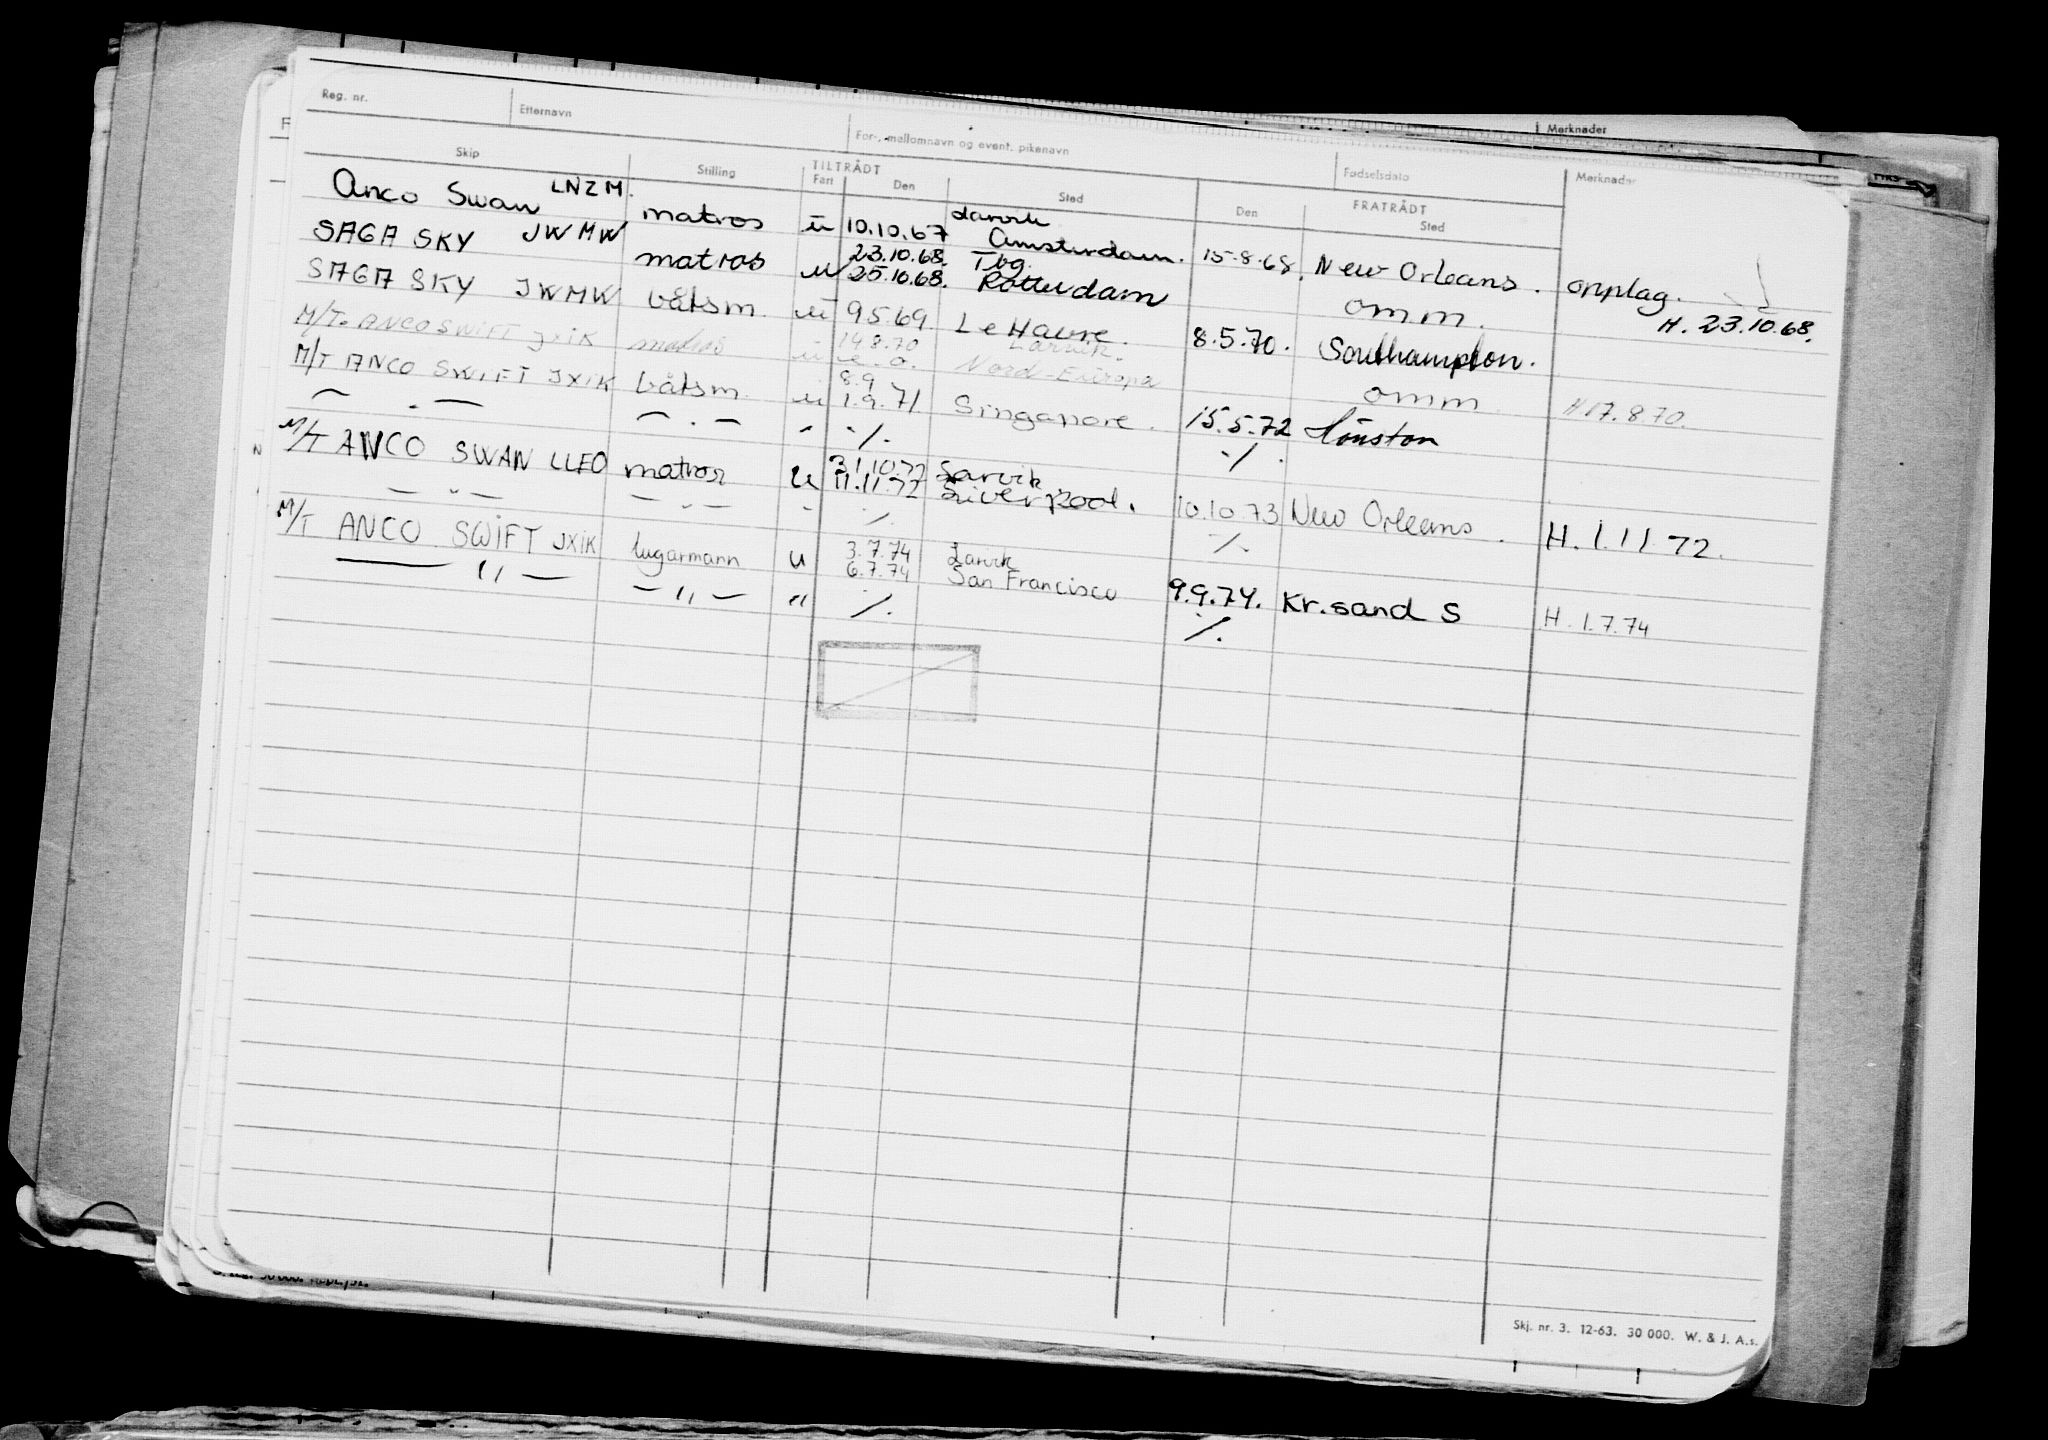 Reg. nr. Etternavn For-, mellomnavn og event. pikenavn Fødselsdato Merknader
Merknader
Skip Stilling TILTRÅDT Fart Den Sted FRATRÅDT Den Sted
Anco Swan LNZM. matros ü 10.10.67 Larvik Amsterdam. 15.8.68. New Orleans. opplag.
SAGA SKY JWMW matros u 23.10.68. Tbg. 25.10.68. Rotterdam omm. H. 23.10.68.
SAGA SKY JWMW båtsm. ü 9.5.69. Le Havre. 8.5.70. Southampton.
M/T. ANCO SWIFT JXIK matros ü 14.8.70 Larvik. e. o. Nord-Europa omm. H 17.8.70.
M/T ANCO SWIFT JXIK båtsm. ü 8.9 1.9.71 Singapore. 15.5.72 Houston
— . — — . — " ·/. ·/.
M/T ANCO SWAN LLEO matros u 31.10.72 Larvik 11.11.72 Liverpool. 10.10.73 New Orleans. H. 1.11.72.
— " — — " — " ·/. ·/.
M/T ANCO SWIFT JXIK lugarmann u 3.7.74 Larvik 6.7.74 San Francisco 9.9.74. Kr.sand S H. 1.7.74
— " — — " — " ·/. ·/.
Skj. nr. 3. 12-63. 30 000. W. & J. A.s.